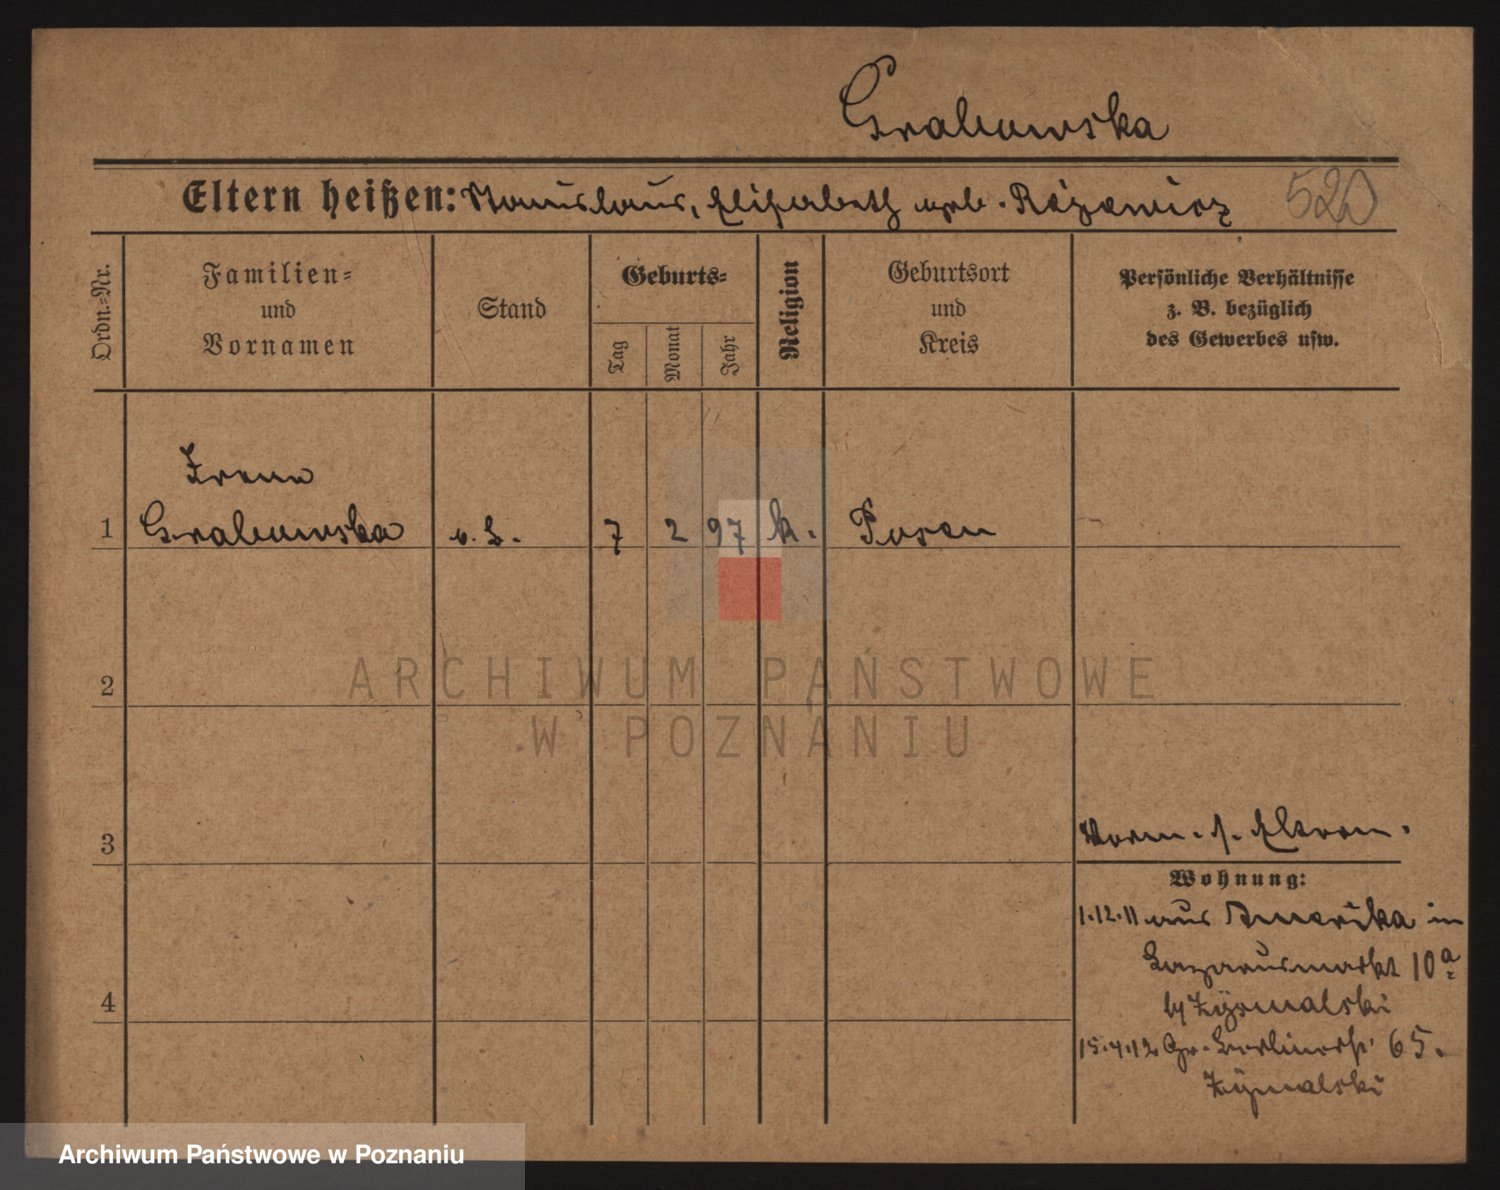 Grabowska
Eltern heißen: Stanislaus, Elisabeth geb. Rózewicz 520
Ordn.-Nr.
Familien-
und
Vornamen
Stand
Geburts-
Tag
Monat
Jahr
Religion
Geburtsort
und
Kreis
Persönliche Verhältnisse
z. B. bezüglich
des Gewerbes usw.
Irena
1 Grabowska 7 2 97 k. Posen
2
3
Vorm. s. Eltern.
Wohnung:
1.12.11 aus Amerika in
Lazarusmarkt 10a
by Zysnalski
4
15.4.12 Gr. Berlinerstr 65.
ARCHIWUM PAŃSTWOWE
W POZNANIU
Archiwum Państwowe w Poznaniu